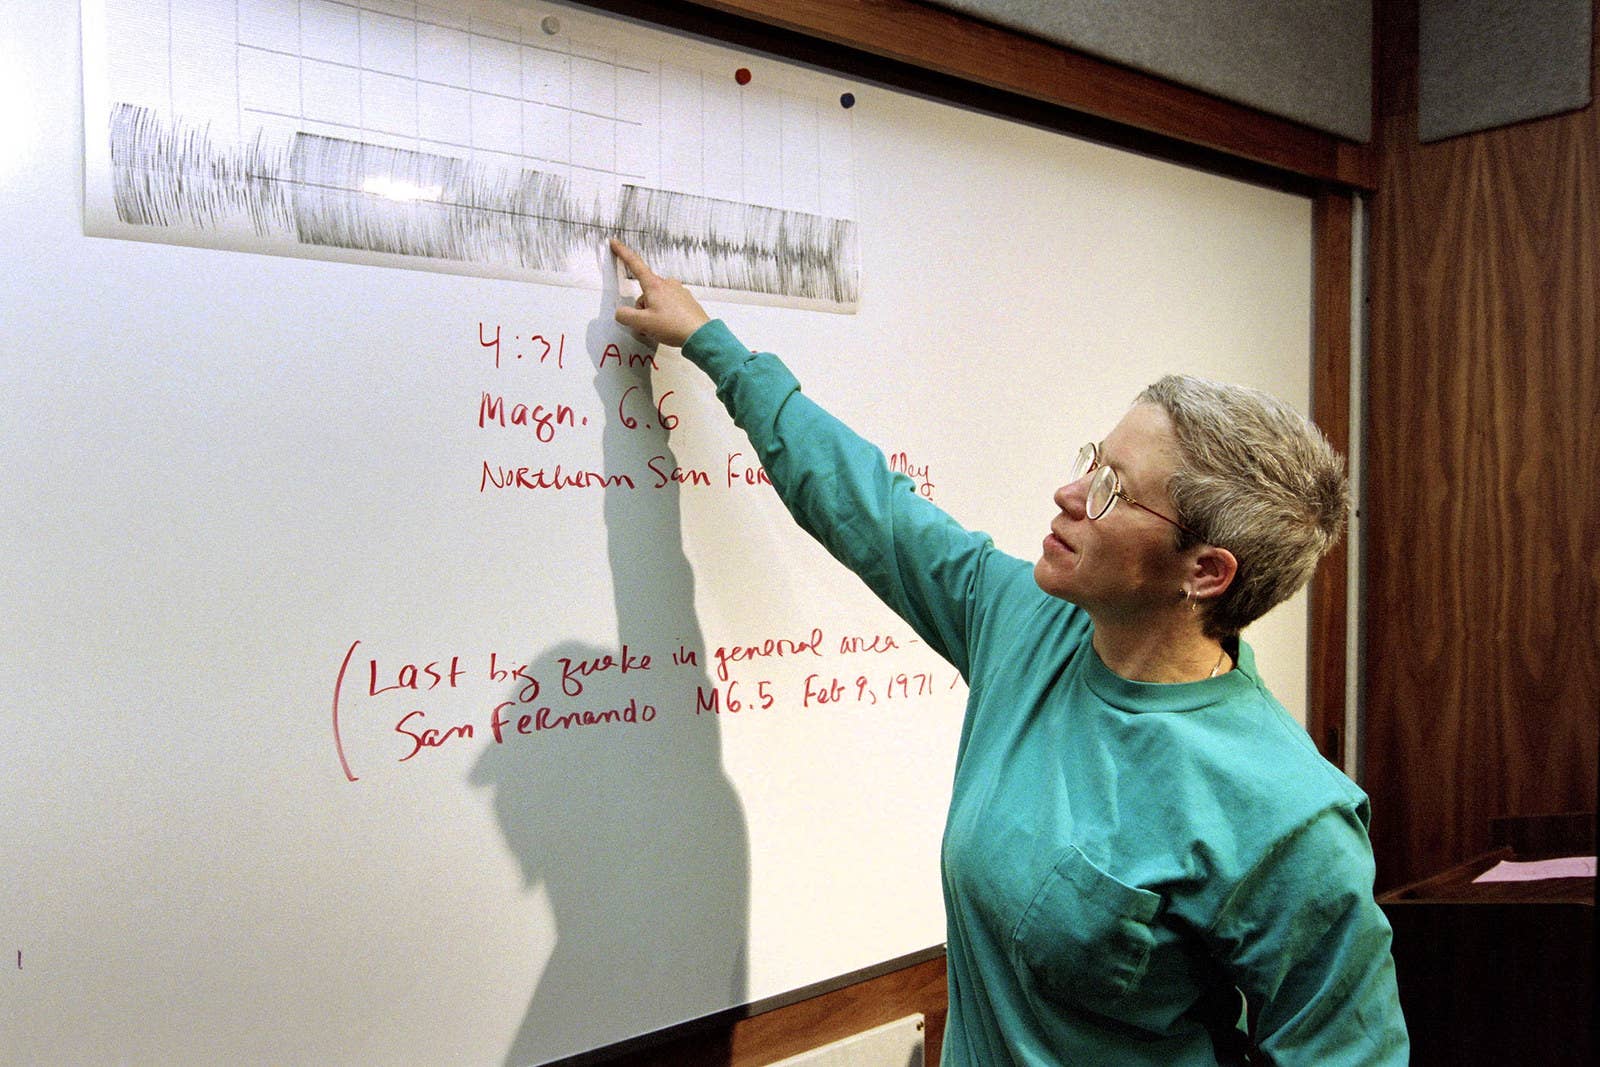 4:31 Am
Magn. 6.6
Northern San Fer lley
(Last big quake in general area -
San Fernando M6.5 Feb 9, 1971